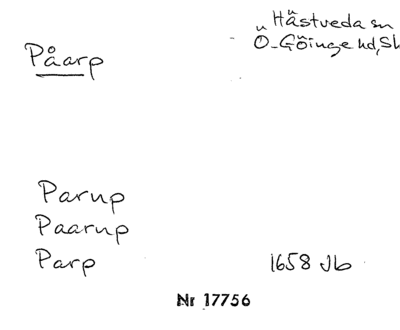 Hästveda sn
Påarp
Ö-Göinge hd, Sk
Parup
Paarup
Parp 1658 Jb
Nr 17756